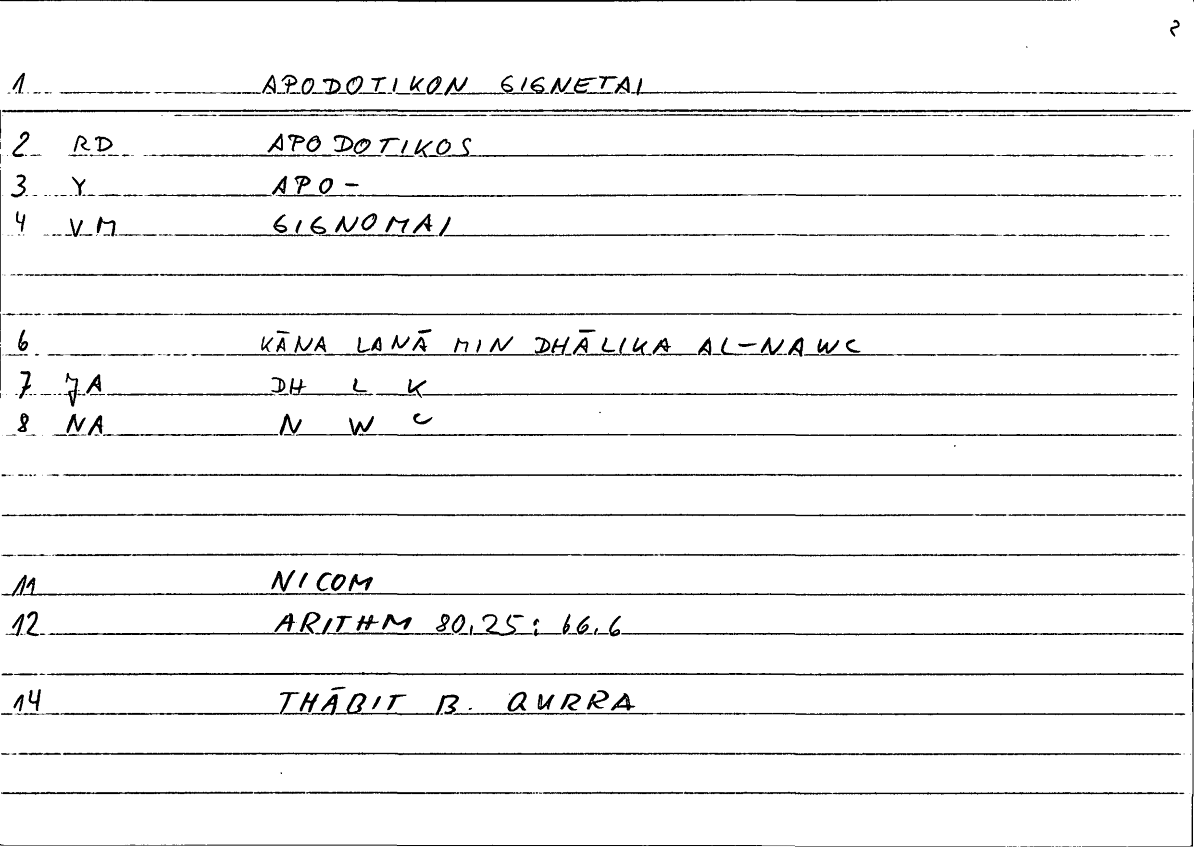 2
1 APODOTIKON GIGNETAI
2 RD APODOTIKOS
3 Y APO-
4 VM GIGNOMAI
6 KĀNA LANĀ MIN DHĀLIKA AL-NAWC
7 JA DH L K
8 NA N W C
11 NICOM
12 ARITHM 80,25; 66,6
14 THĀBIT B. QURRA